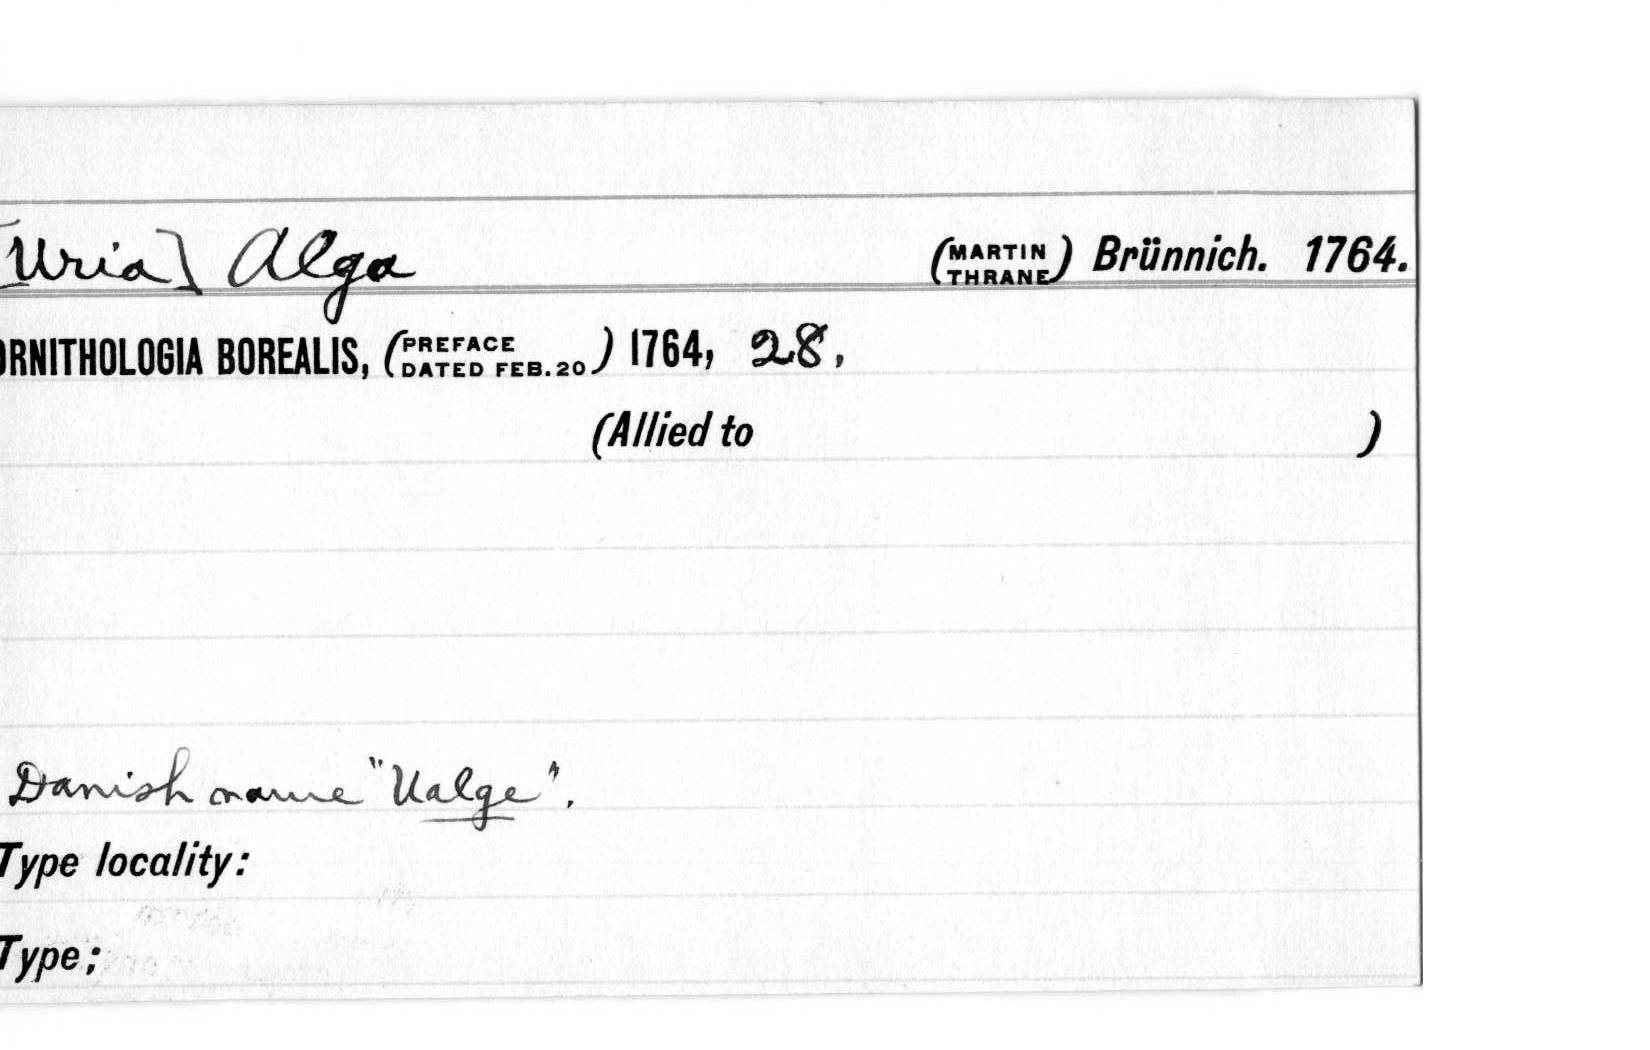 [Uria] Alga (MARTIN THRANE) Brünnich. 1764.
ORNITHOLOGIA BOREALIS, (PREFACE DATED FEB.20) 1764, 28,
(Allied to )
Danish name "Ualge".
Type locality:
Type;